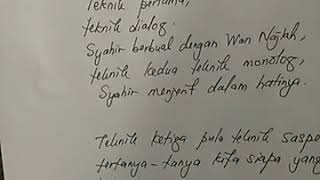 Teknik pertama,
teknik dialog.
Syahir berbual dengan Wan Najkah,
teknik kedua teknik monolog,
Syahir menjerit dalam hatinya.
Teknik ketiga pula teknik saspe
tertanya-tanya kita siapa yang